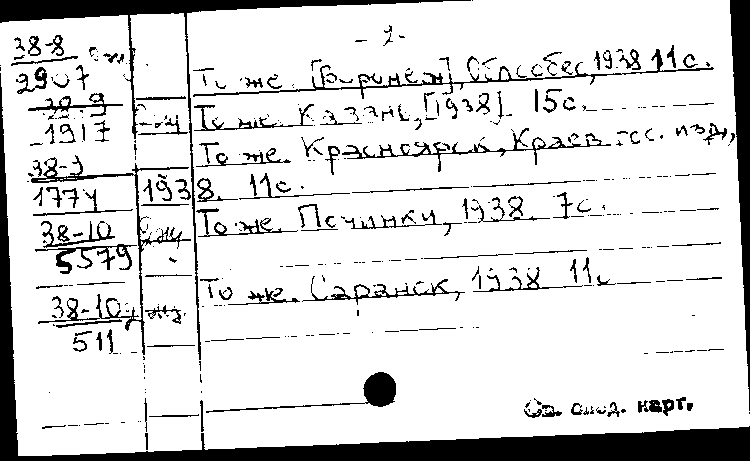 - 2 -
38-8
2907
То же. [Воронеж], Облсобес, 1938 11с.
38-9
1917
То же. Казань, [1938] 15с.
38-9
1774
То же. Красноярск, Краев. гос. изд.,
1938. 11с.
38-10
5579
То же. Починки, 1938. 7с.
38-10
511
То же. Саранск, 1938 11с
См. след. карт.